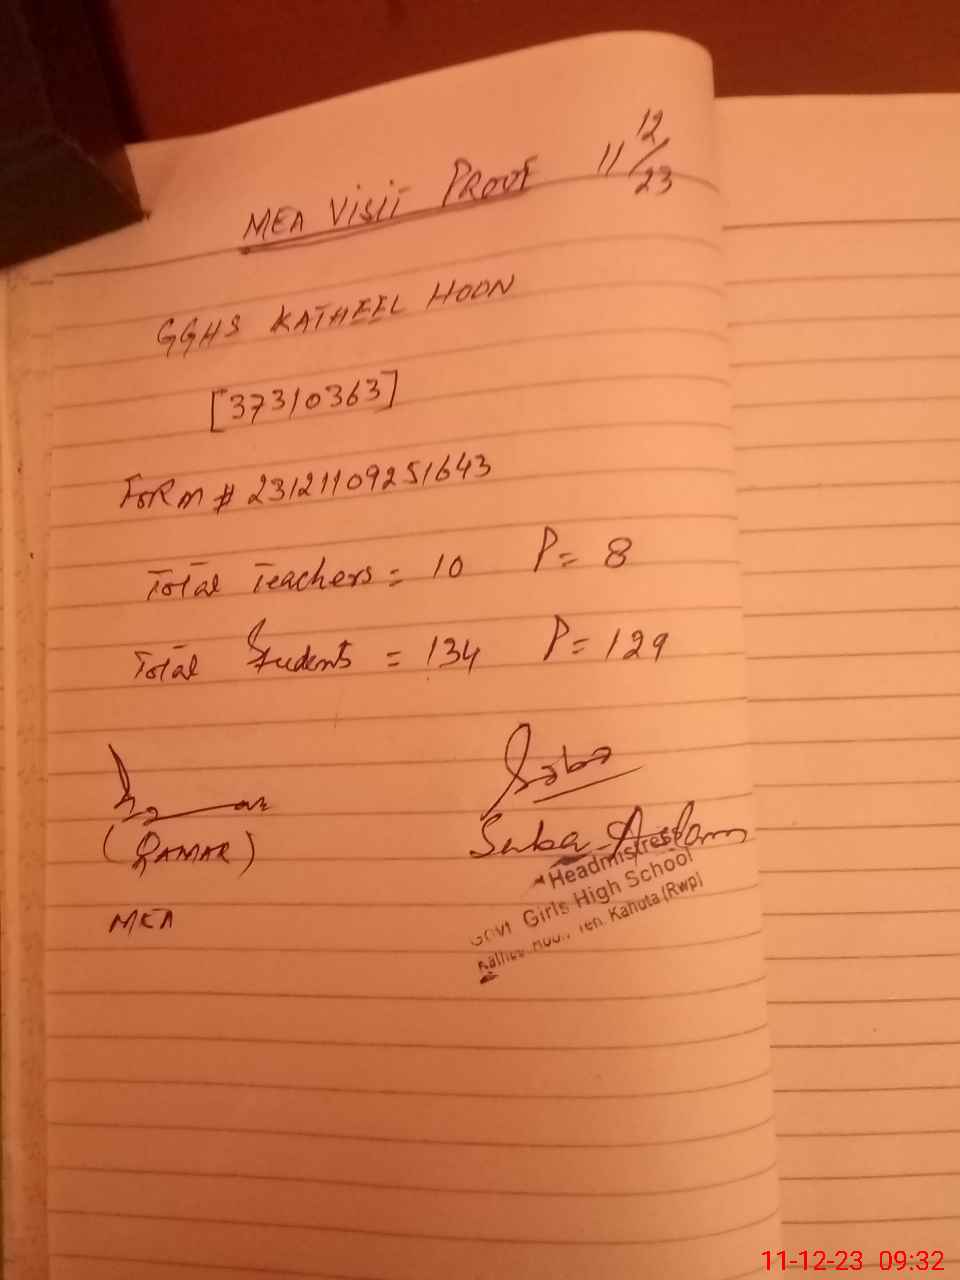 MEA Visit Proof 11/12/23
GGHS KATHEEL HOON
[37310363]
FORM # 23121109251643
Total Teachers = 10 P = 8
Total Students = 134 P = 129
Saba
(QAMAR)
Saba Aslam
MEA
Headmistress
Govt Girls High School
Teh. Kahuta (Rwp)
11-12-23 09:32